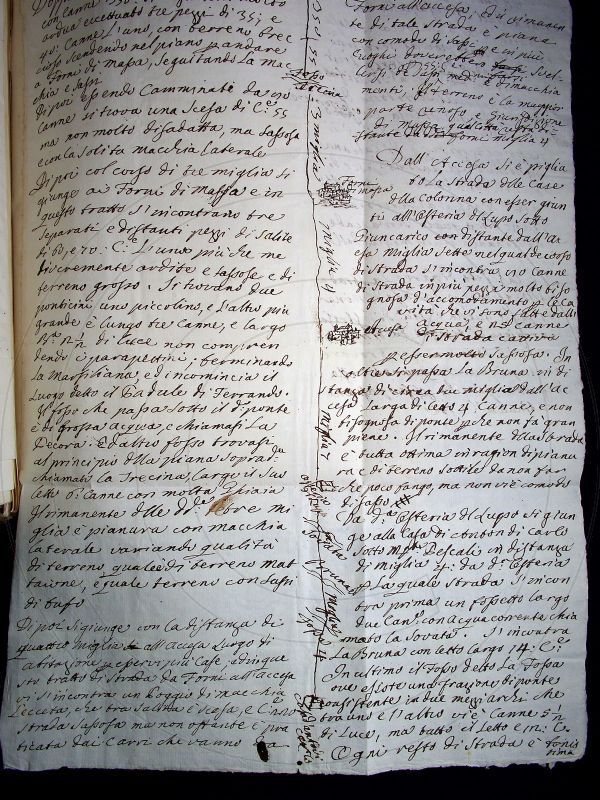 ardua eccettuato tre pezzi di 35; e
40: Canne l'uno, con terreno brec
cioso scendendo nel piano p andare
a Forni di Massa, seguitando la mac
chia e sassi
Di poi essendo Camminate da 170
Canne si trova una scesa di C.e 55
ma non molto disadatta, ma sassosa
e con la solita macchia laterale
Di più col corso di tre miglia si
giunge ai Forni di Massa e in
questo tratto s'incontrano tre
separati e distanti pezzi di salite
di 60, e 70: C.e l'uno più che me
diocremente ardite e sassose e di
terreno grosso. Si trovano due
ponticini uno piccolino, e l'altro più
grande è lungo tre Canne, e largo
di luce non compren
dendo i parapettini; terminando
la Marsiliana ed incomincia il
Luogo detto il Padule di Ferrando.
Il fosso che passa sotto il d. ponte
è di grossa acqua, e chiamasi la
Pecora. Ed altro fosso trovasi
al principio della piana sopra d.a
chiamato la Trecina, largo il suo
letto 8: Canne con molta Ghiaia
Il rimanente delle d.e tre mi
glia è pianura con macchia
laterale variando qualità
di terreno, quale è di terreno mat
taione, e quale terreno con sassi
di tufo
Di poi si giunge con la distanza di
quattro miglia all'Accesa Luogo di
abitazione p esservi più Case, e in que
sto tratto di strada da Forni all'accesa
si s'incontra un Poggio di macchia
Lecceta, che tra salita e scesa, è C.e
strada sassosa ma non ostante è pra
ticata dai Carri che vanno da
Forni all'accesa. Ed il rimanen
te di tale strada è piana
con comodo di sassi e in più
luoghi
menti, il terreno è la maggior
parte
Dall'Accesa si è piglia
to la strada delle Case
della Colonna con esser giun
ti all'Osteria di Lupo sotto
Giuncarico con distante dall'ac
cesa Miglia sette nel qual corso
di strada s'incontra 170 Canne
di strada in più pezzi molto biso
gnosa d'accomodamento p le ca
vità che vi sono fatte dall'
acqua, e 112 canne
di strada cattiva
p esser molto sassosa. In
oltre si passa la Bruna in di
stanza di circa due miglia dall'ac
cesa larga di letto 4 Canne, e non
bisognosa di ponte p che non fa gran
piene. Il rimanente della strada
è tutta ottima in ragion di pianu
ra e di terreno sottile da non far
che poco fango, ma non vi è comodo
di sassi
Da d.a Osteria di Lupo si giun
ge alla Casa di Conton di Carlo
sotto M.te Pescali in distanza
di Miglia 4: da d.a Osteria
La quale strada s'incon
tra prima un fossetto largo
due Can.e con acqua corrente chia
mato la Sovata. S'incontra
la Bruna con letto largo 14: C.e
In ultimo il Fosso detto la Fossa
ove esiste una frazione di ponte
consistente in due mezzi archi che
tra uno e l'altro vi è Canne 5
di Luce, ma tutto il letto è 11: C.
Ogni resto di strada è
3 miglia
Forni
di Massa
miglia 4
Accesa
miglia 7